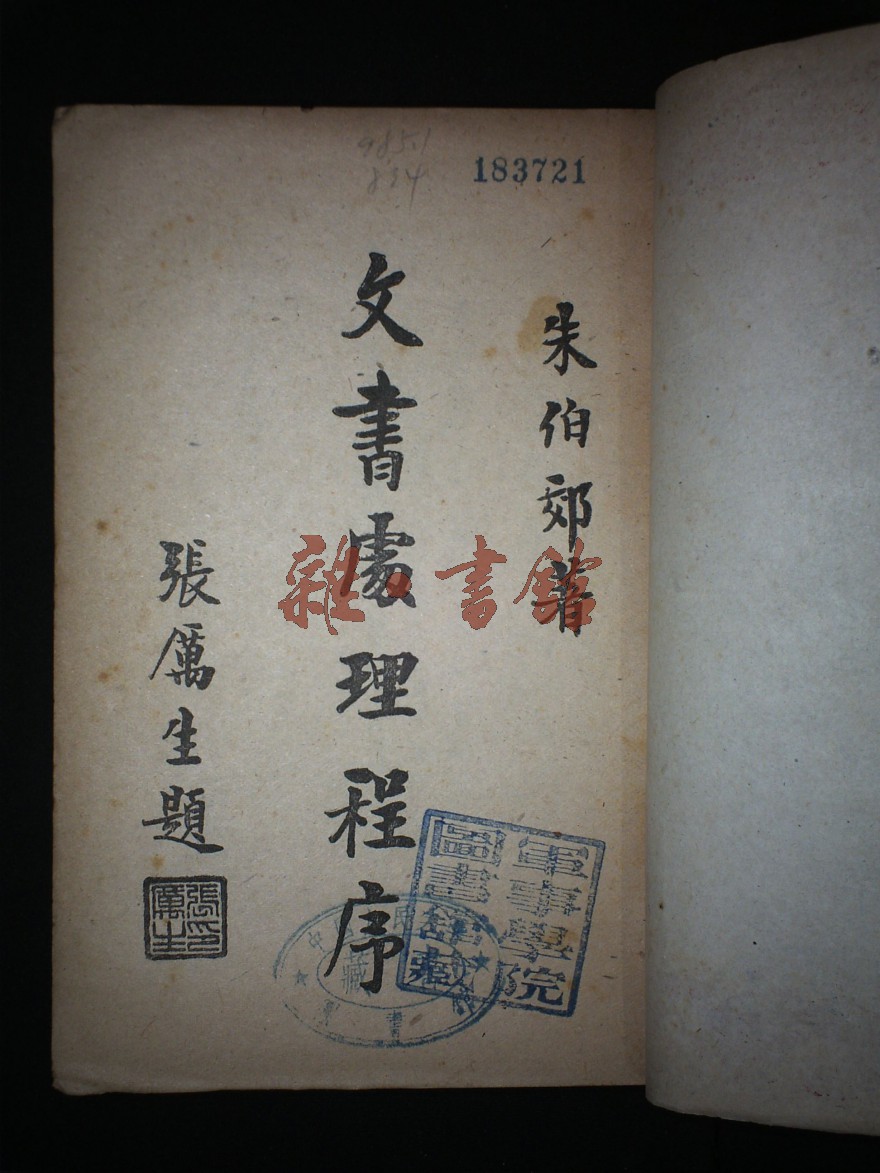 985.1
834
183721
朱伯郊著
文書處理程序
張厲生題
張印厲生
軍事學院
圖書館藏
雜·書館